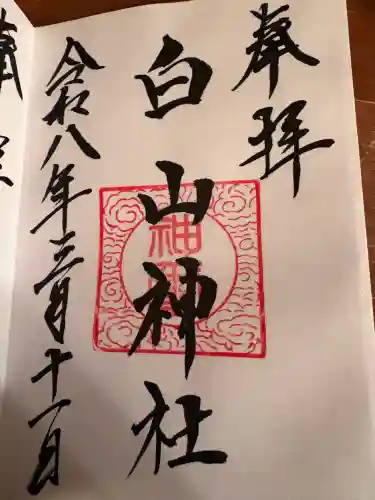 奉拝
白山神社
令和八年三月十一日